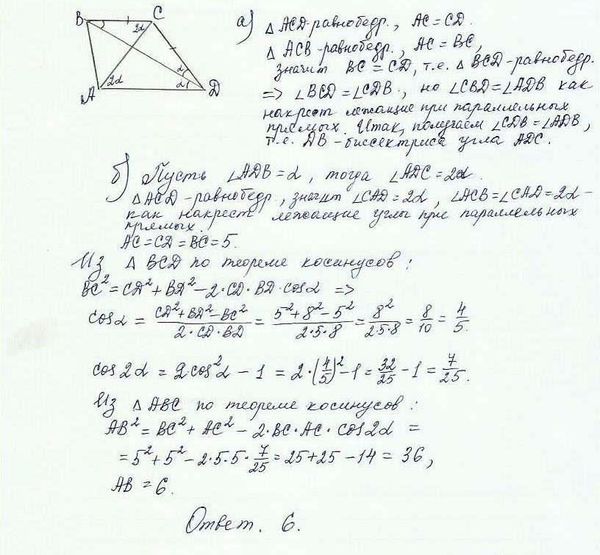 B C 2α
A 2α α α D
а) △ ACD-равнобедр., AC = CD.
△ ACB-равнобедр., AC = BC,
значит BC = CD, т.е. △ BCD-равнобедр.
=> ∠BCD = ∠CDB, но ∠CBD = ∠ADB как
накрест лежащие при параллельных
прямых. Итак, получаем ∠CDB = ∠ADB,
т.е. DB - биссектриса угла ADC.
б) Пусть ∠ADB = α, тогда ∠ADC = 2α.
△ACD-равнобедр., значит ∠CAD = 2α, ∠ACB = ∠CAD = 2α -
как накрест лежащие углы при параллельных
прямых.
AC = CD = BC = 5.
Из △ BCD по теореме косинусов:
BC² = CD² + BD² - 2·CD·BD·cosα =>
cosα = (CD² + BD² - BC²)/(2·CD·BD) = (5² + 8² - 5²)/(2·5·8) = 8²/(2·5·8) = 8/10 = 4/5.
cos2α = 2cos²α - 1 = 2·(4/5)² - 1 = 32/25 - 1 = 7/25.
Из △ABC по теореме косинусов:
AB² = BC² + AC² - 2·BC·AC·cos2α =
= 5² + 5² - 2·5·5·7/25 = 25 + 25 - 14 = 36,
AB = 6.
Ответ. 6.